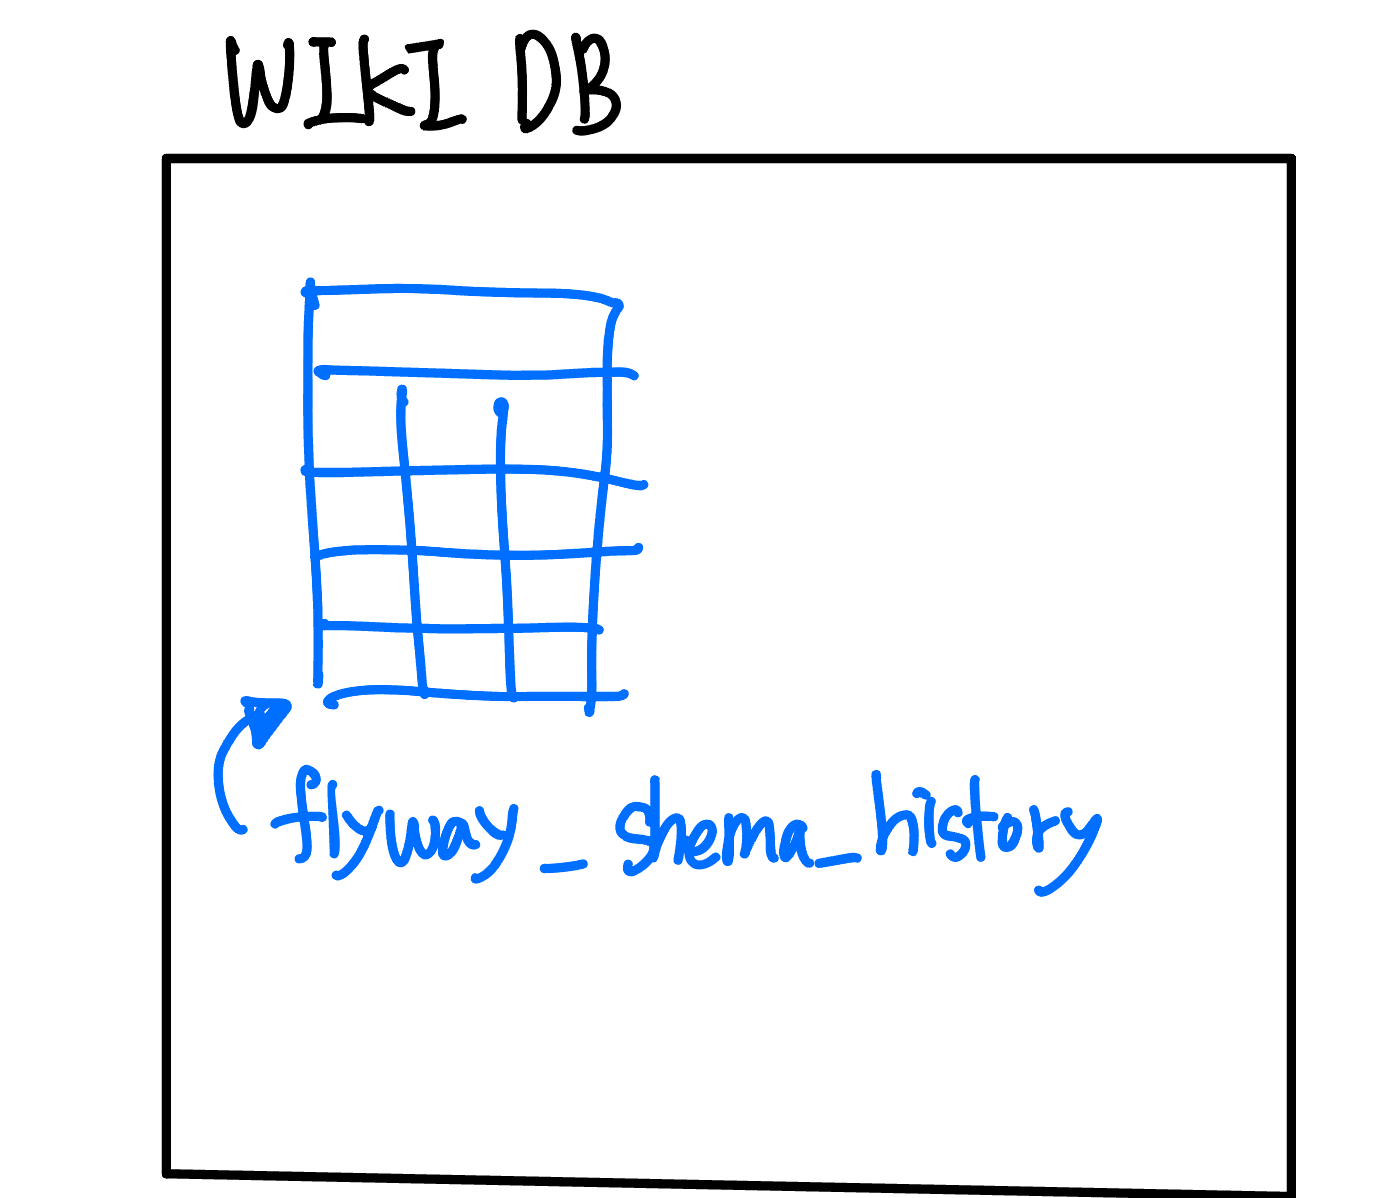 WIKI DB
flyway_shema_history